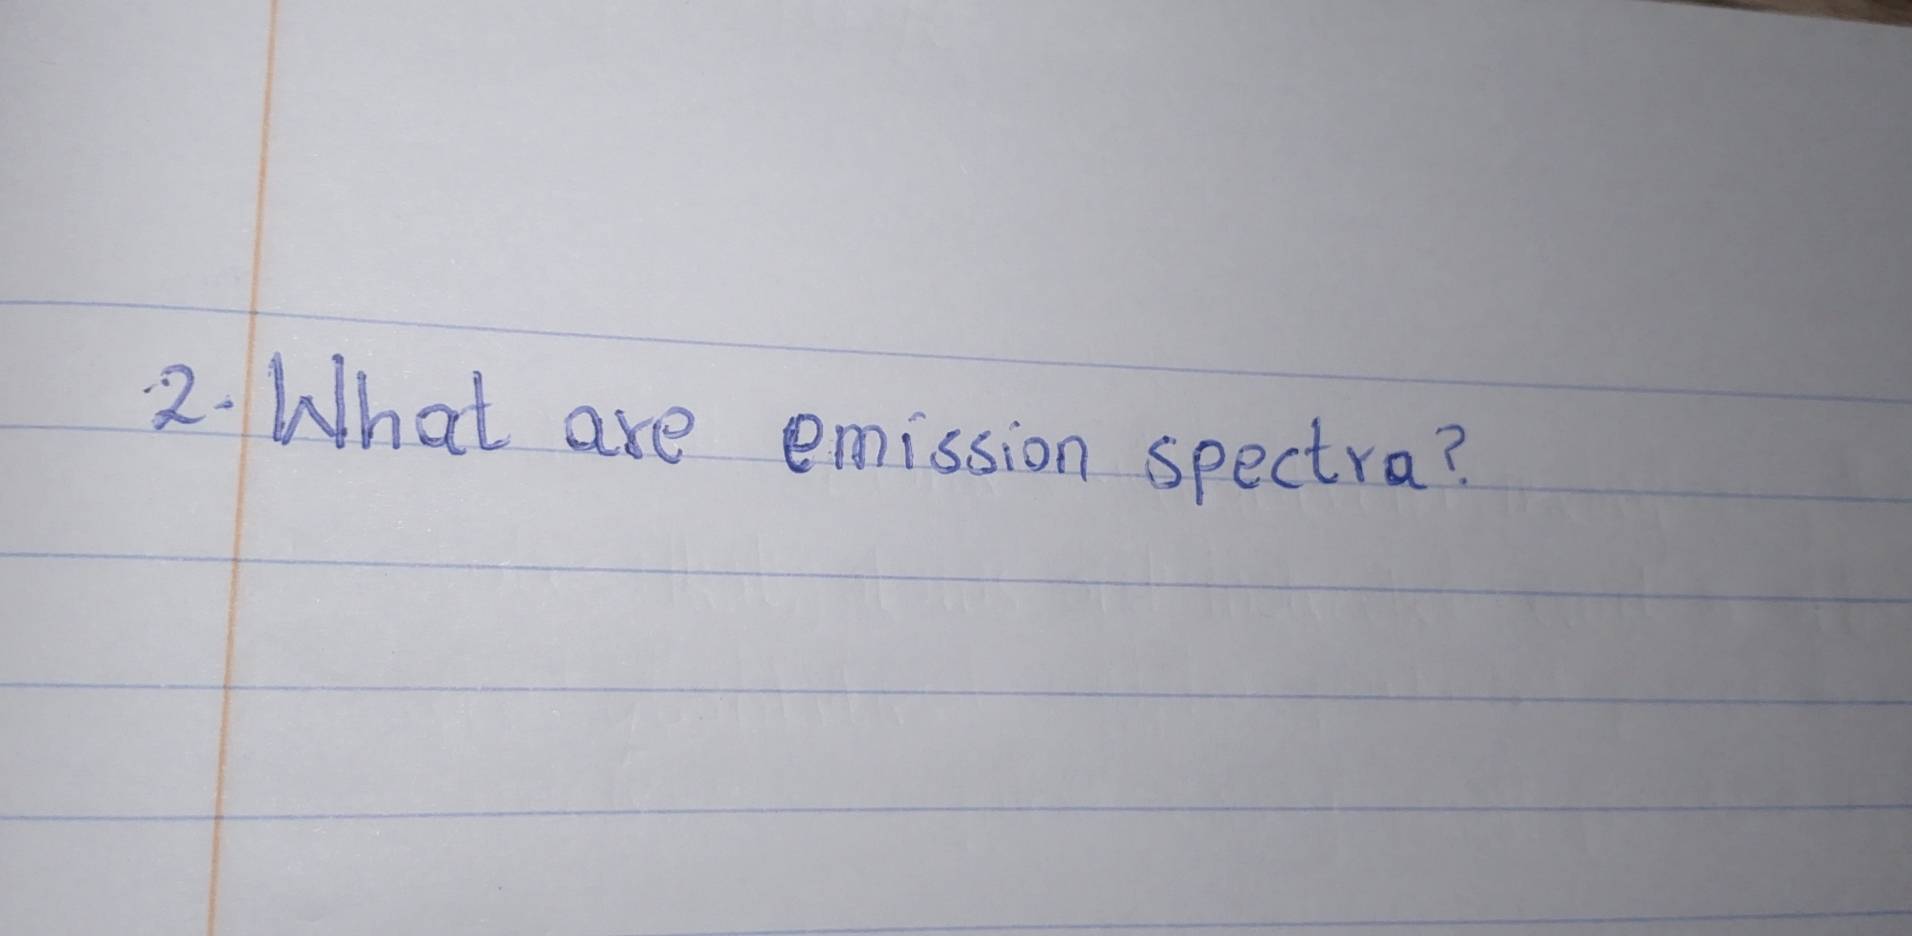 2. What are emission spectra?